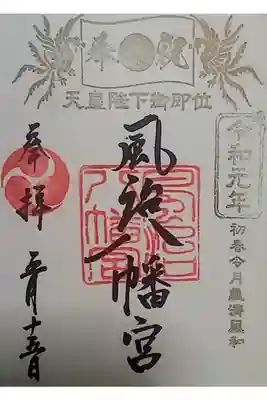 奉祝
天皇陛下御即位
令和元年
初春令月氣淑風和
風治八幡宮
奉拝
五月十五日